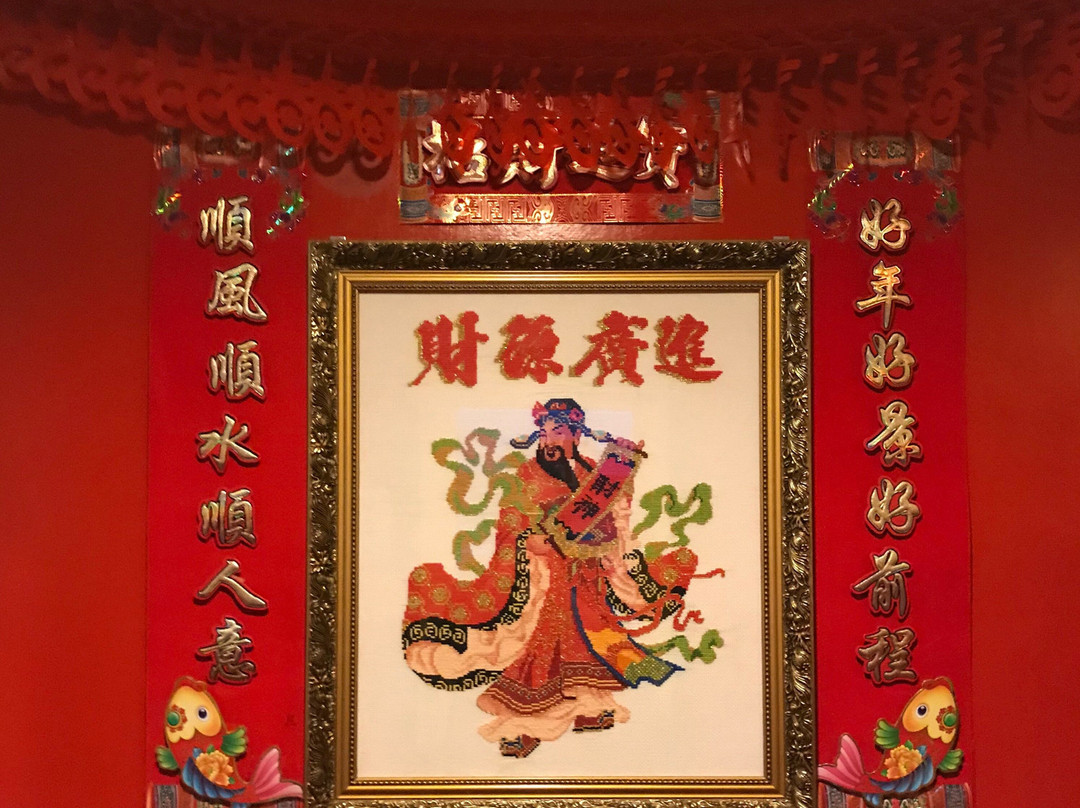 招財進寶
好年好景好前程
順風順水順人意
財源廣進
財神